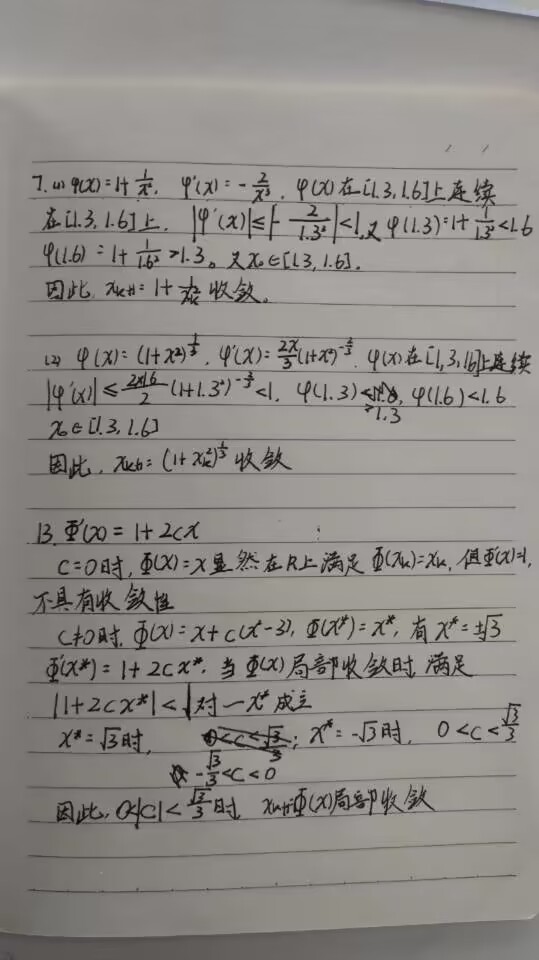 7. (1) φ(x)=1+1/x², φ'(x)=-2/x³, φ(x)在[1.3,1.6]上连续
在[1.3,1.6]上, |φ'(x)|≤|-2/1.3³|<1,又φ(1.3)=1+1/1.3²<1.6
φ(1.6)=1+1/1.6²>1.3。又x₀∈[1.3,1.6].
因此, xₖ₊₁=1+1/xₖ²收敛。
(2) φ(x)=(1+x²)^(1/3), φ'(x)=2x/3(1+x²)^(-2/3). φ(x)在[1,3,1.6]上连续
|φ'(x)|≤2×1.6/2(1+1.3²)^(-2/3)<1, φ(1.3)>1.3, φ(1.6)<1.6
x₀∈[1.3,1.6]
因此, xₖ₊₁=(1+xₖ²)^(1/3)收敛
13. Φ'(x)=1+2cx
C=0时,Φ(x)=x显然在R上满足Φ(xₖ)=xₖ,但Φ'(x)=1,
不具有收敛性
C≠0时.Φ(x)=x+c(x²-3),Φ(x*)=x*,有x*=±√3
Φ'(x*)=1+2cx*.当Φ(x)局部收敛时.满足
|1+2cx*|<1对一x*成立
x*=√3时, ; x*=-√3时, 0<c<√3/3
-√3/3<c<0
因此,0<|c|<√3/3时 xₖ₊₁=Φ(x)局部收敛